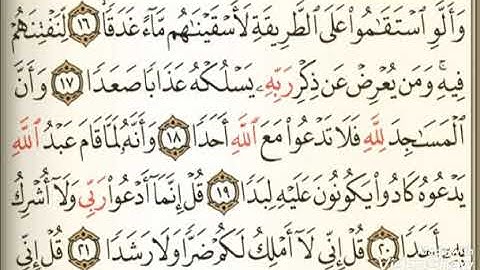 وَأَلَّوِ ٱسْتَقَـٰمُوا۟ عَلَى ٱلطَّرِيقَةِ لَأَسْقَيْنَـٰهُم مَّآءً غَدَقًا ١٦ لِّنَفْتِنَهُمْ
فِيهِ ۚ وَمَن يُعْرِضْ عَن ذِكْرِ رَبِّهِۦ يَسْلُكْهُ عَذَابًا صَعَدًا ١٧ وَأَنَّ
ٱلْمَسَـٰجِدَ لِلَّهِ فَلَا تَدْعُوا۟ مَعَ ٱللَّهِ أَحَدًا ١٨ وَأَنَّهُۥ لَمَّا قَامَ عَبْدُ ٱللَّهِ
يَدْعُوهُ كَادُوا۟ يَكُونُونَ عَلَيْهِ لِبَدًا ١٩ قُلْ إِنَّمَآ أَدْعُوا۟ رَبِّى وَلَآ أُشْرِكُ
أَحَدًا ٢٠ قُلْ إِنِّى لَآ أَمْلِكُ لَكُمْ ضَرًّا وَلَا رَشَدًا ٢١ قُلْ إِنِّى